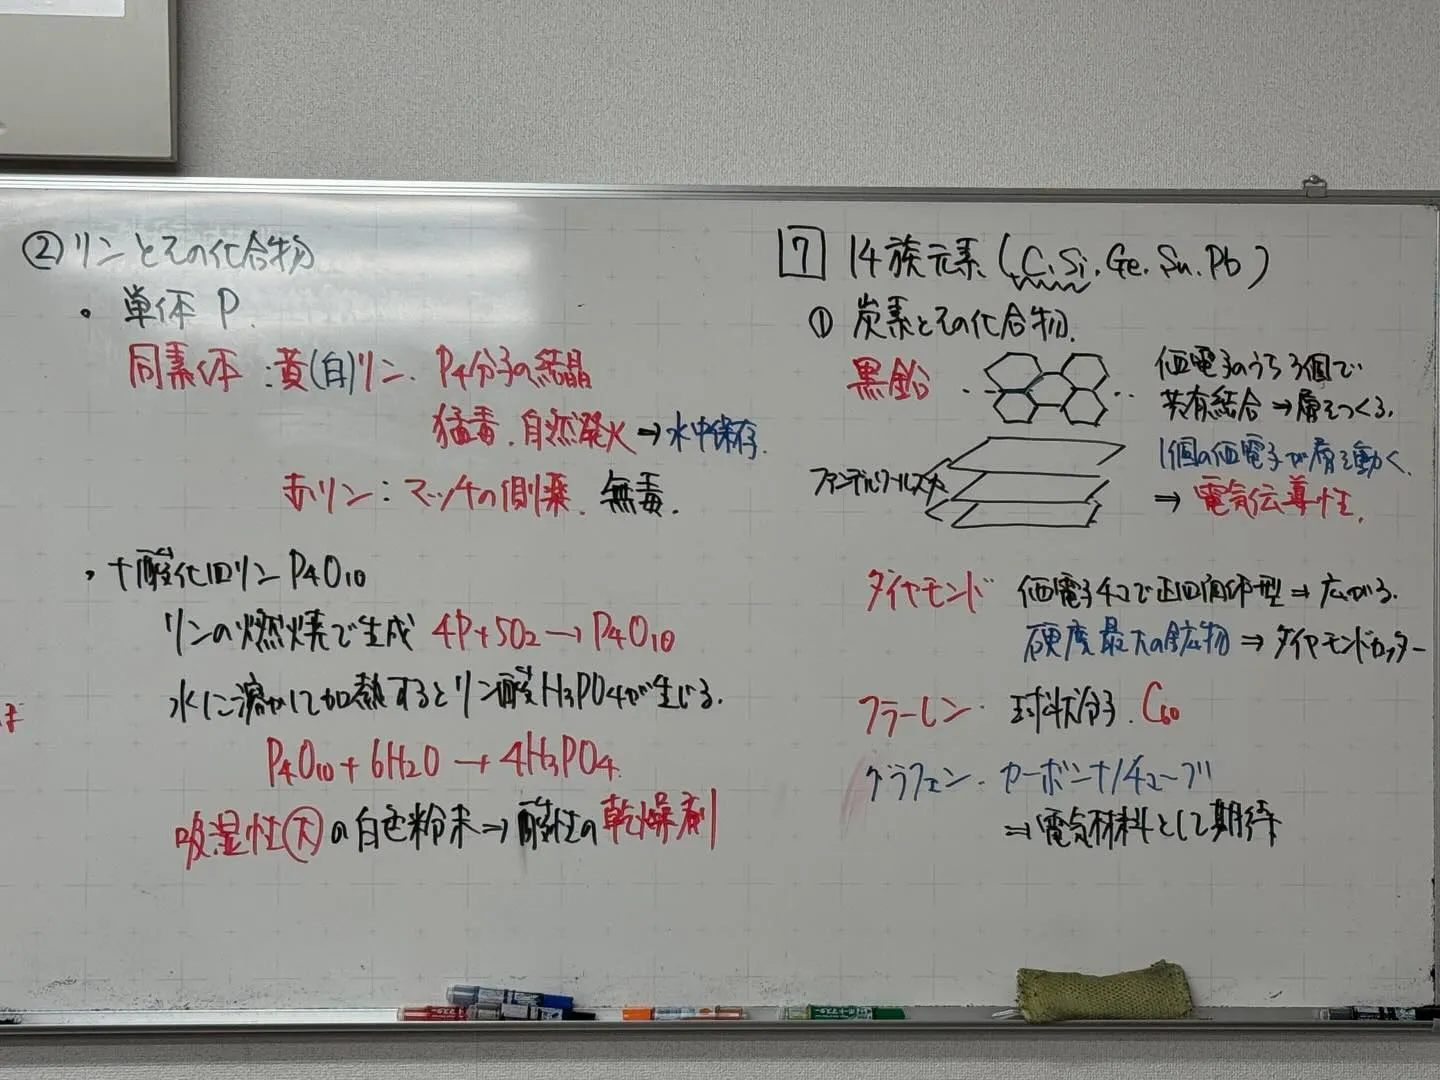 ②リンとその化合物
・単体 P.
同素体:黄(白)リン. P4分子の結晶
猛毒.自然発火→水中保存.
赤リン:マッチの側薬.無毒.
・十酸化四リン P4O10
リンの燃焼で生成 4P+5O2→P4O10
水に溶かして加熱するとリン酸H3PO4が生じる.
P4O10+6H2O→4H3PO4.
吸湿性(大)の白色粉末⇒酸性の乾燥剤
7 14族元素(C.Si.Ge.Sn.Pb)
① 炭素とその化合物.
黒鉛
価電子のうち3個で
共有結合⇒層をつくる.
1個の価電子が層を動く.
⇒電気伝導性.
ファンデルワールス力
ダイヤモンド 価電子4コで正四面体型⇒広がる.
硬度最大の鉱物⇒ダイヤモンドカッター
フラーレン.球状分子.C60
グラフェン.カーボンナノチューブ
⇒電気材料として期待